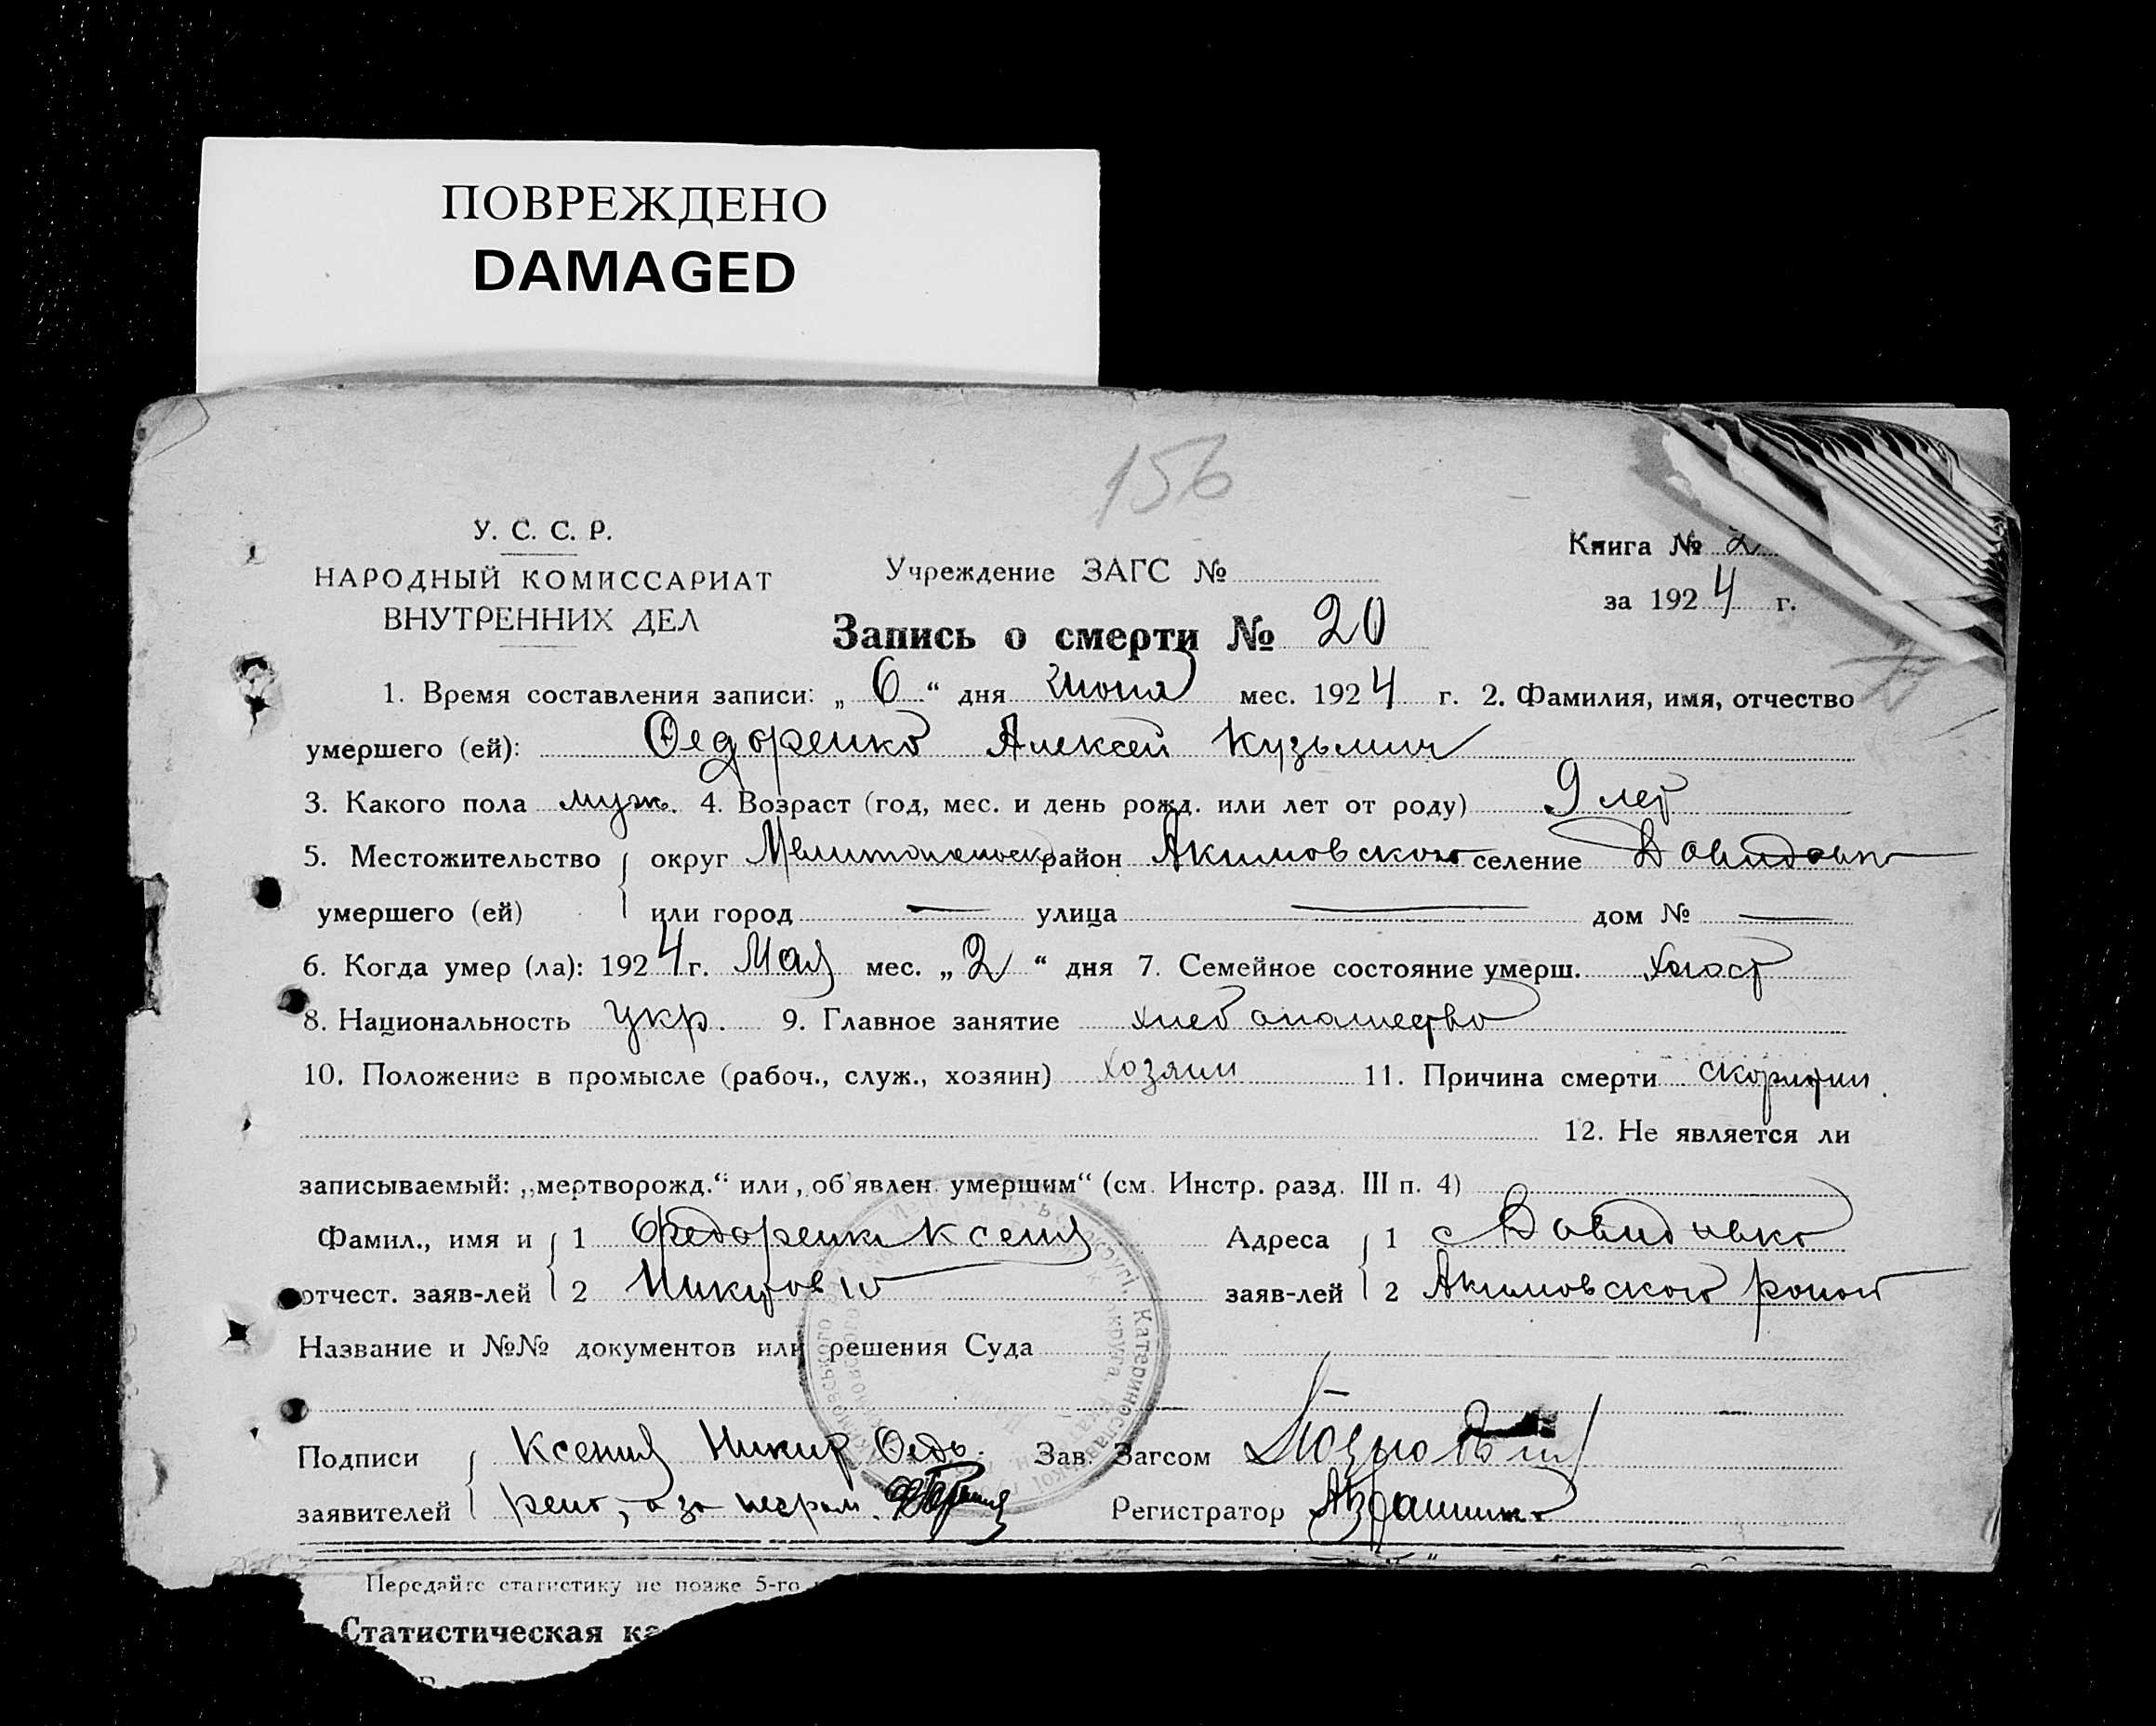 ПОВРЕЖДЕНО
DAMAGED
156
У. С. С. Р.
НАРОДНЫЙ КОМИССАРИАТ
ВНУТРЕННИХ ДЕЛ
Учреждение ЗАГС №
Книга № 2
за 1924 г.
Запись о смерти № 20
1. Время составления записи: „ 6 “ дня Июня мес. 1924 г. 2. Фамилия, имя, отчество
умершего (ей): Федоренко Алексей Кузьмич
3. Какого пола муж. 4. Возраст (год, мес. и день рожд. или лет от роду) 9 лет
5. Местожительство округ район Акимовского селение Давидовка
умершего (ей) или город — улица — дом № —
6. Когда умер (ла): 1924 г. Мая мес. „ 2 “ дня 7. Семейное состояние умерш. холост
8. Национальность Укр. 9. Главное занятие хлебопашество
10. Положение в промысле (рабоч., служ., хозяин) хозяин 11. Причина смерти
12. Не является ли
записываемый: „мертворожд.“ или „об'явлен умершим“ (см. Инстр. разд. III п. 4)
Фамил., имя и 1 Федоренко Ксения Адреса 1 с Давидовка
отчест. заяв-лей 2 заяв-лей 2 Акимовского
Название и №№ документов или решения Суда
Подписи Ксения Никит Федо- Зав. Загсом
заявителей ренко, а за неграм. Регистратор
Катеринославської
Передайте статистику не позже 5-го
Статистическая ка